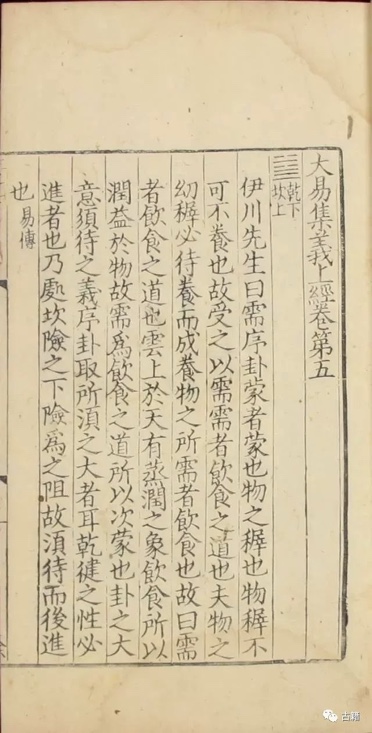 大易集義上經卷第五
乾下
坎上
伊川先生曰需序卦蒙者蒙也物之穉也物穉不
可不養也故受之以需需者飲食之道也夫物之
幼穉必待養而成養物之所需者飲食也故曰需
者飲食之道也雲上於天有蒸潤之象飲食所以
潤益於物故需為飲食之道所以次蒙也卦之大
意須待之義序卦取所須之大者耳乾健之性必
進者也乃處坎險之下險為之阻故須待而後進
也易傳
古籍